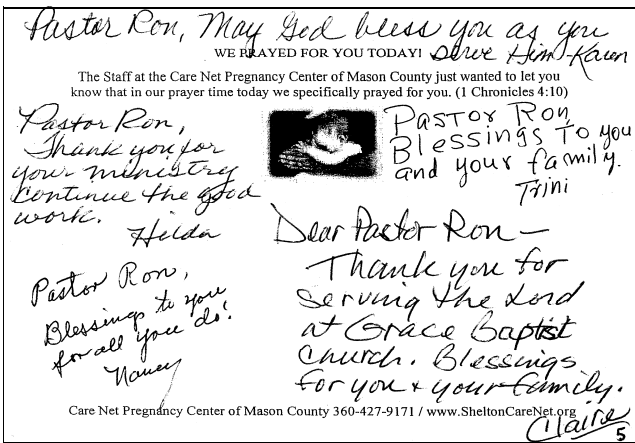 Pastor Ron, May God bless you as you
serve Him - Karen
WE PRAYED FOR YOU TODAY!
The Staff at the Care Net Pregnancy Center of Mason County just wanted to let you
know that in our prayer time today we specifically prayed for you. (1 Chronicles 4:10)
Pastor Ron,
Thank you for
your ministry
continue the good
work.
Hilda
Pastor Ron,
Blessings to you
and your family.
Trini
Pastor Ron,
Blessings to you
for all you do!
Nancy
Dear Pastor Ron -
Thank you for
serving the Lord
at Grace Baptist
Church. Blessings
for you + your family.
Claire
Care Net Pregnancy Center of Mason County 360-427-9171 / www.SheltonCareNet.org
5